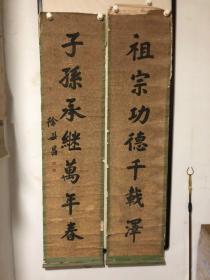 祖宗功德千載澤
子孫承繼萬年春
徐世昌